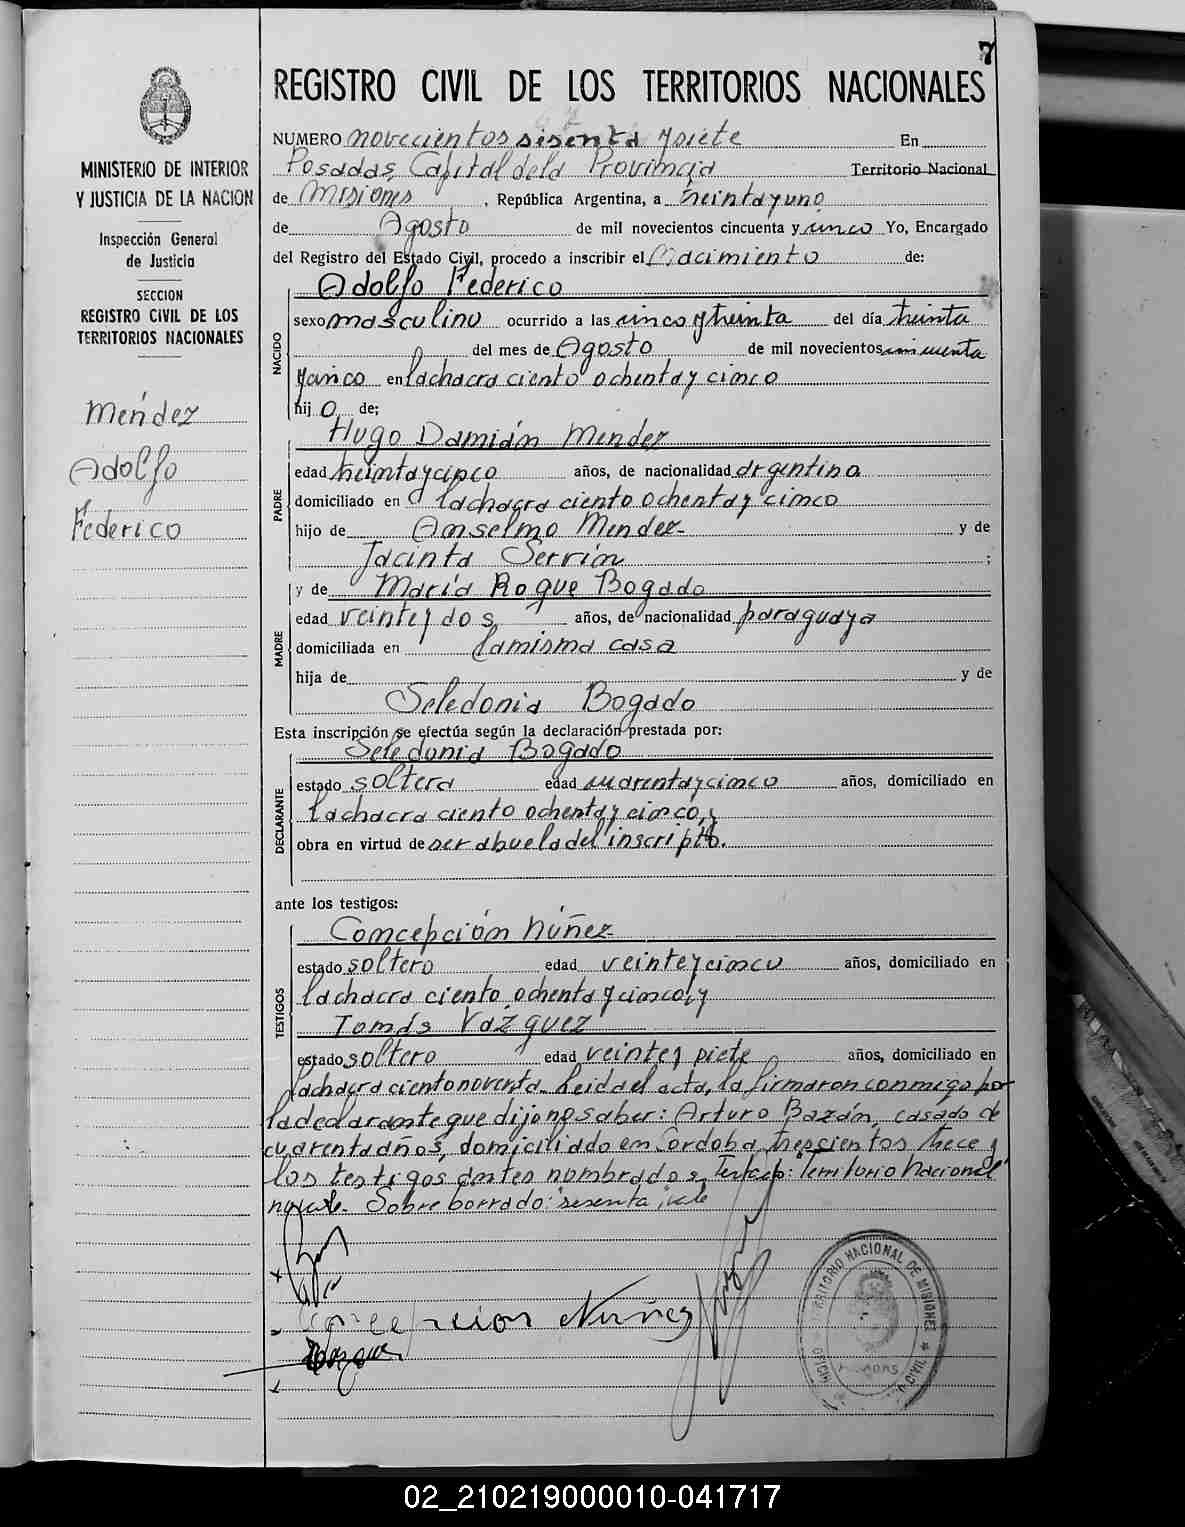 7
REGISTRO CIVIL DE LOS TERRITORIOS NACIONALES
MINISTERIO DE INTERIOR
Y JUSTICIA DE LA NACION
Inspección General
de Justicia
SECCION
REGISTRO CIVIL DE LOS
TERRITORIOS NACIONALES
Mendez
Adolfo
Federico
NUMERO novecientos sesenta y siete En
Posadas, Capital de la Provincia Territorio Nacional
de Misiones, República Argentina, a treinta y uno
de Agosto de mil novecientos cincuenta y cinco Yo, Encargado
del Registro del Estado Civil, procedo a inscribir el Nacimiento de:
NACIDO
Adolfo Federico
sexo masculino ocurrido a las cinco y treinta del día treinta
del mes de Agosto de mil novecientos cincuenta
y cinco en la chacra ciento ochenta y cinco
hij o de;
PADRE
Hugo Damián Mendez
edad treinta y cinco años, de nacionalidad argentina
domiciliado en la chacra ciento ochenta y cinco
hijo de Anselmo Mendez y de
Jacinta Serrín ;
MADRE
y de María Roque Bogado
edad veinte y dos años, de nacionalidad paraguaya
domiciliada en la misma casa
hija de y de
Seledonia Bogado
Esta inscripción se efectúa según la declaración prestada por:
DECLARANTE
Seledonia Bogado
estado soltera edad cuarenta y cinco años, domiciliado en
la chacra ciento ochenta y cinco, y
obra en virtud de ser abuela del inscripto.
ante los testigos:
TESTIGOS
Concepción Núñez
estado soltero edad veinte y cinco años, domiciliado en
la chacra ciento ochenta y cinco, y
Tomás Vazquez
estado soltero edad veinte y siete años, domiciliado en
la chacra ciento noventa. Leida el acta, la firmaron conmigo por
la declarante que dijo no saber: Arturo Bazán, casado de
cuarenta años, domiciliado en Córdoba trescientos trece y
los testigos antes nombrados. Testado: Territorio Nacional
no vale. Sobre borrado: sesenta: vale
Concepcion Nuñez
TERRITORIO NACIONAL DE MISIONES
02_210219000010-041717